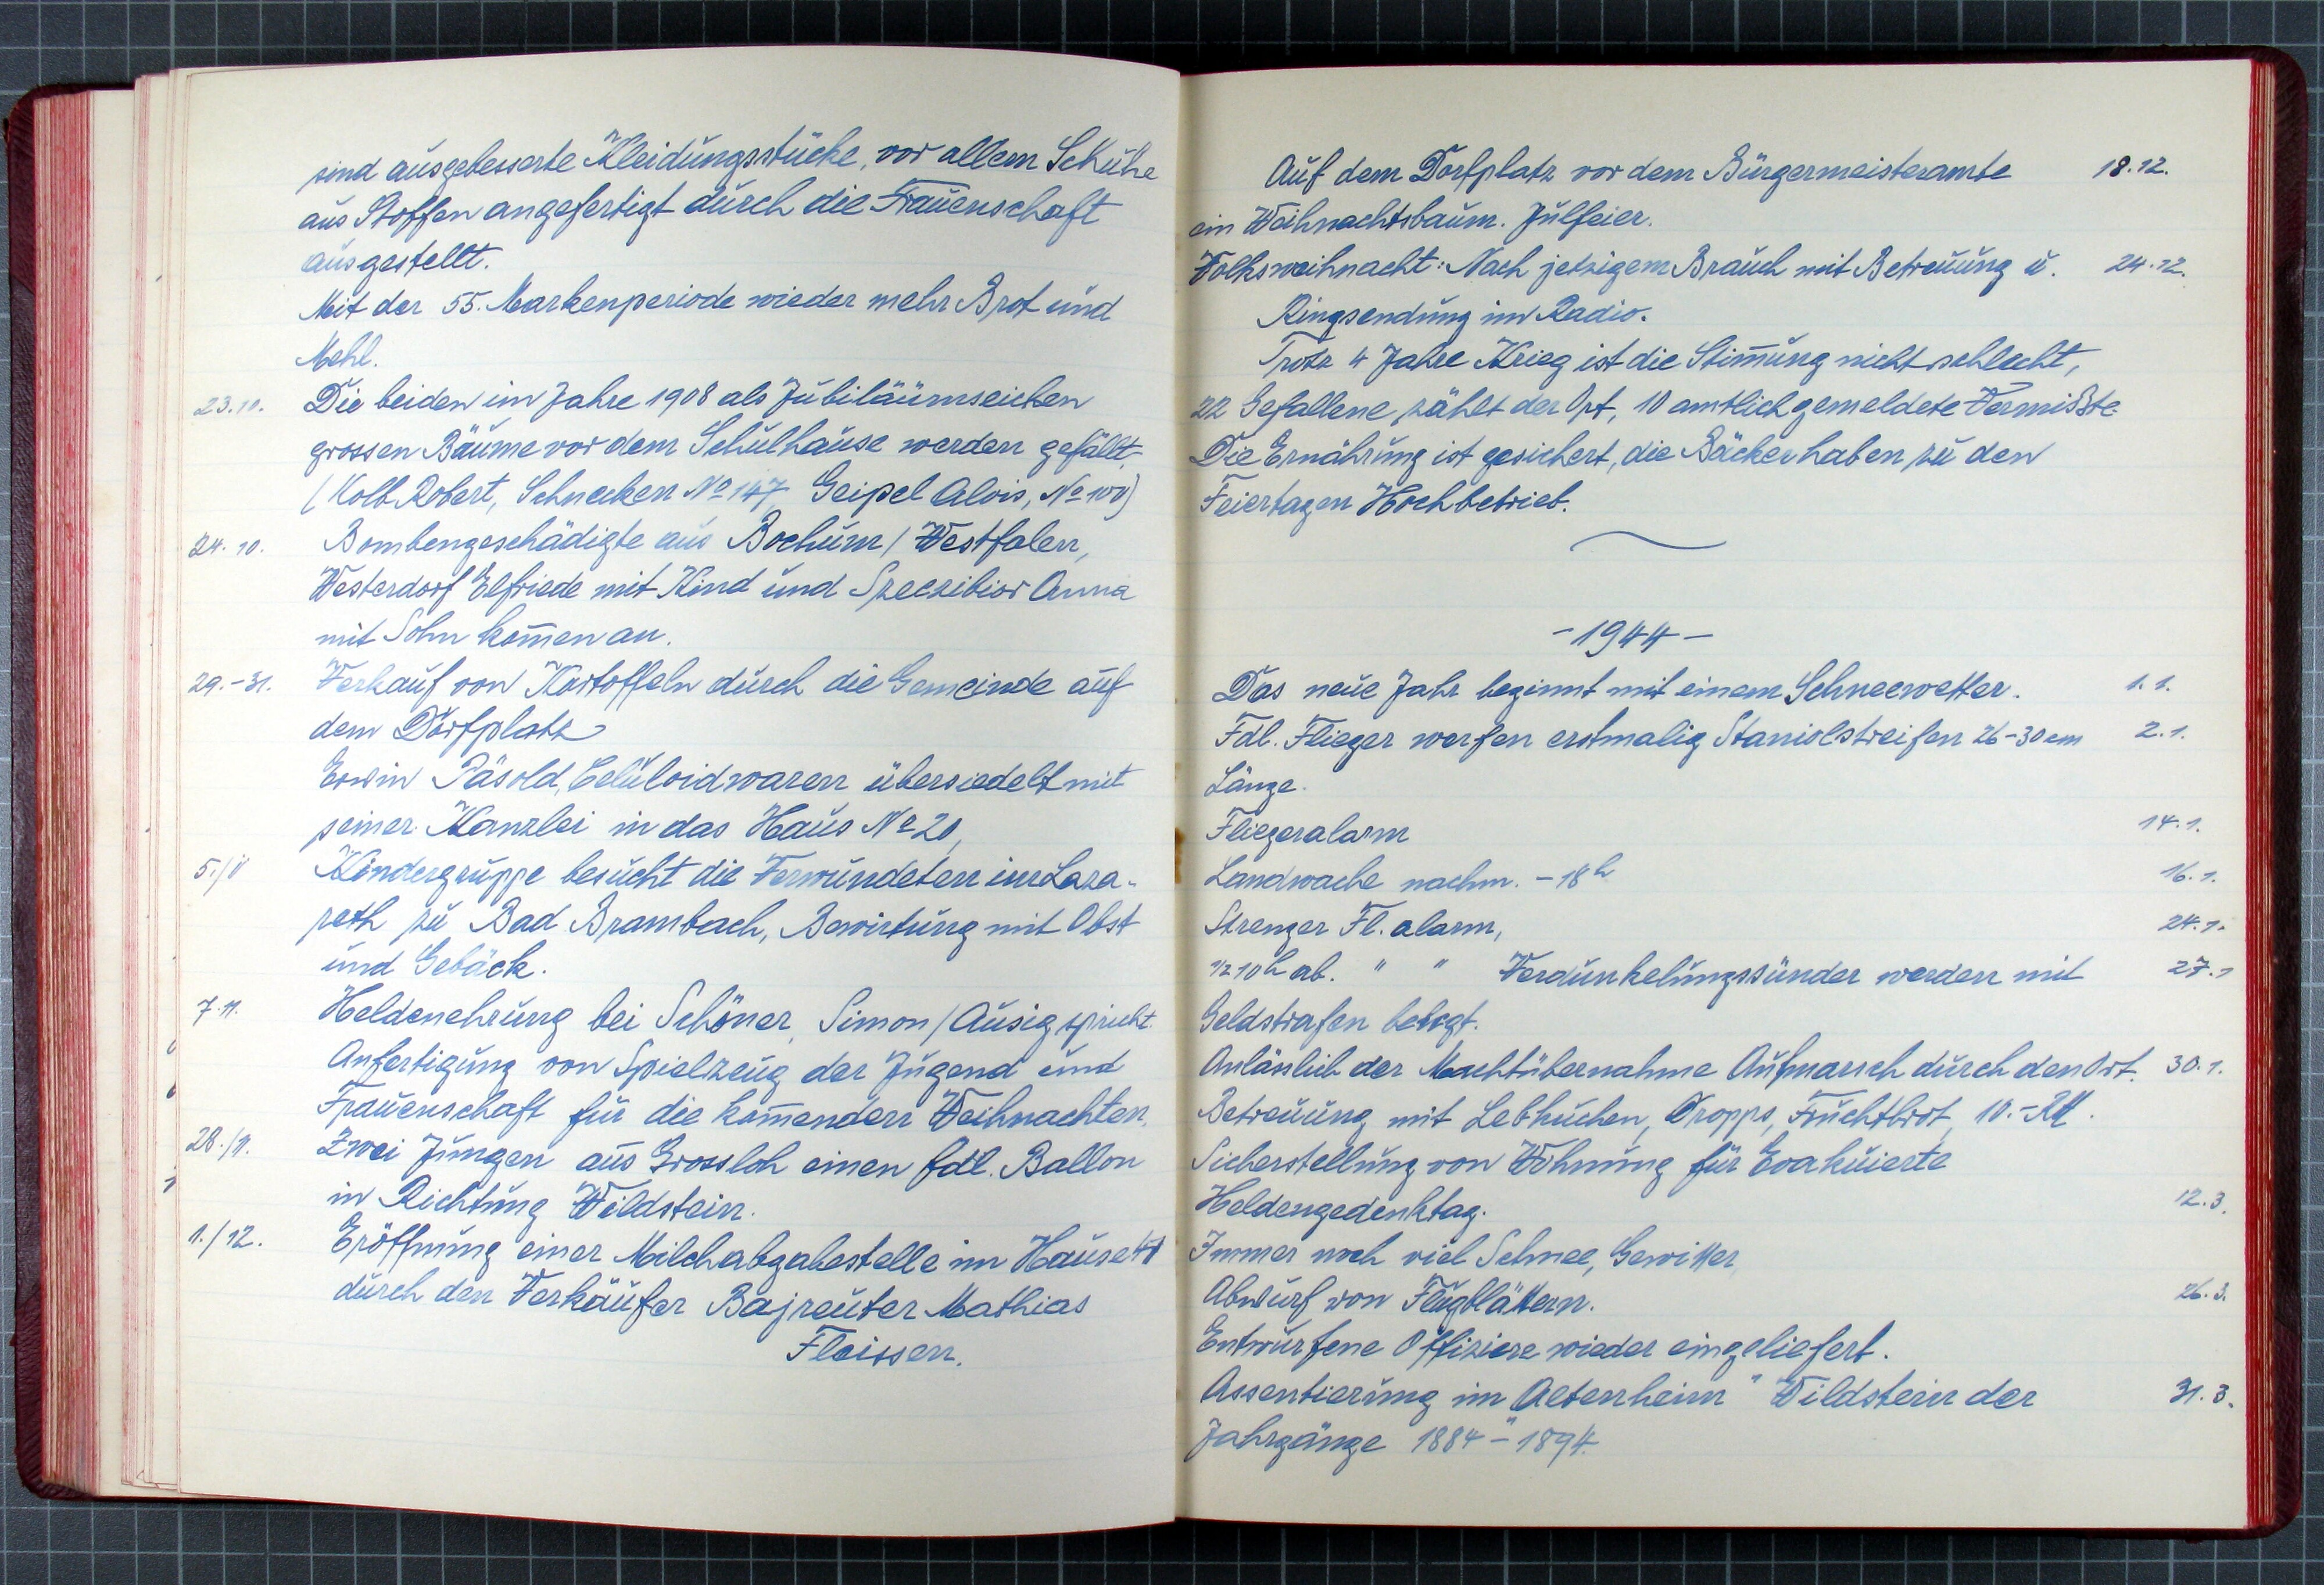 sind ausgebesserte Kleidungsstücke, vor allem Schuhe
aus Stoffen angefertigt durch die Frauenschaft
ausgestellt.
Mit der 55. Markenperiode wieder mehr Brot und
Mehl.
23.10. Die beiden im Jahre 1908 als Jubiläumseichen
grossen Bäume vor dem Schulhause werden gefällt,
(Kolb Robert, Schnecken No 147, Geipel Alois, No 100)
24.10. Bombengeschädigte aus Bochum/Westfalen,
Westerdorf Elfriede mit Kind und Speczibior Anna
mit Sohn kom̄en an.
29.-31. Verkauf von Kartoffeln durch die Gemeinde auf
dem Dorfplatz
Erwin Päsold, Celuloidwaren übersiedelt mit
seiner Kanzlei in das Haus No 20,
5./11 Kindergruppe besucht die Verwundeten im Laza-
reth zu Bad Brambach, Bewirtung mit Obst
und Gebäck.
7.11. Heldenehrung bei Schöner, Simon/Ausig spricht.
Anfertigung von Spielzeug der Jugend und
Frauenschaft für die kom̄enden Weihnachten.
28./11. Zwei Jungen aus Grossloh einen fdl. Ballon
in Richtung Wildstein.
1./12. Eröffnung einer Milchabgabestelle im Hause
durch den Verkäufer Bajreuter Mathias
Fleissen.
Auf dem Dorfplatz vor dem Bürgermeisteramte 18.12.
ein Weihnachtsbaum. Julfeier.
Volksweihnacht: Nach jetzigem Brauch mit Betreuung u. 24.12.
Ringsendung im Radio.
Trotz 4 Jahre Krieg ist die Stim̄ung nicht schlecht,
22 Gefallene zählt der Ort, 10 amtlich gemeldete Vermißte.
Die Ernährung ist gesichert, die Bäcker haben zu den
Feiertagen Hochbetrieb.
- 1944 -
Das neue Jahr beginnt mit einem Schneewetter. 1.1.
Fdl. Flieger werfen erstmalig Staniolstreifen 26-30 cm 2.1.
Länge.
Fliegeralarm 14.1.
Landwache nachm. - 18h 16.1.
Strenger Fl. alarm, 24.1.
1/2 10h ab. " " Verdunkelungssünder werden mit 27.1
Geldstrafen belegt.
Anlässlich der Machtübernahme Aufmarsch durch den Ort. 30.1.
Betreuung mit Lebkuchen, Dropps, Fruchtbrot, 10.- RM.
Sicherstellung von Wohnung für Evakuierte
Heldengedenktag. 12.3.
Immer noch viel Schnee, Gewitter,
Abwurf von Flugblättern. 26.3.
Entwurfene Offiziere wieder eingeliefert.
Assentierung im Altenheim" Wildstein der 31.3.
Jahrgänge 1884 - 1894.